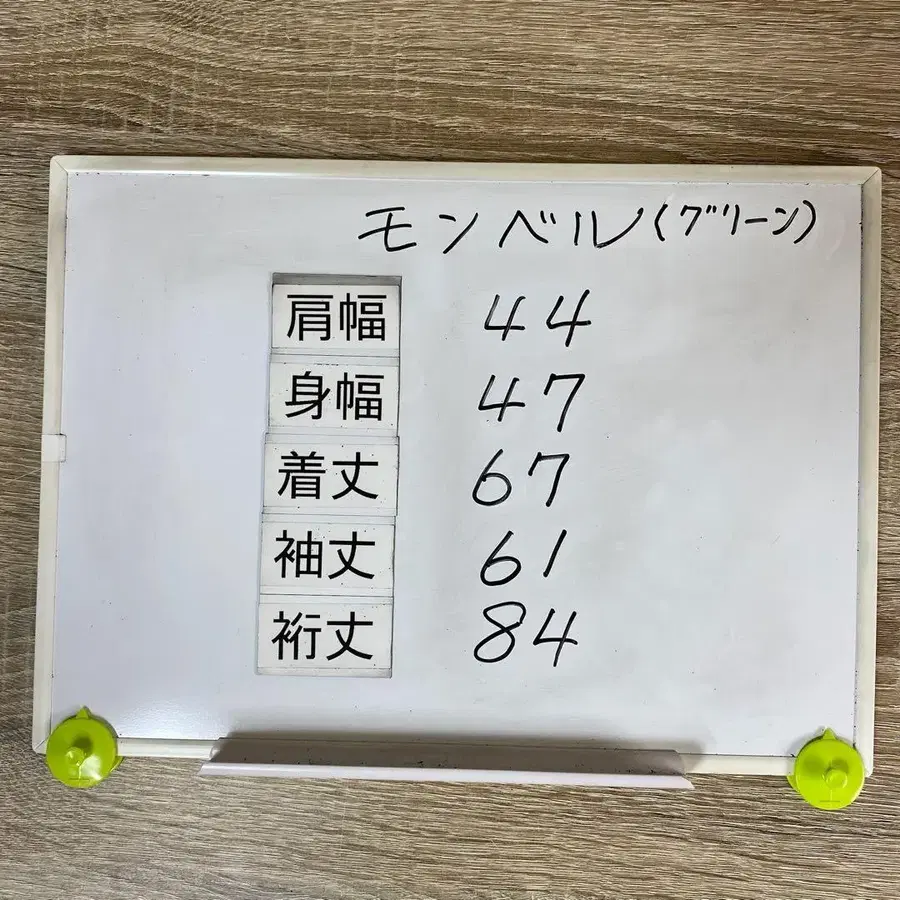 モンベル(グリーン)
肩幅 44
身幅 47
着丈 67
袖丈 61
裄丈 84